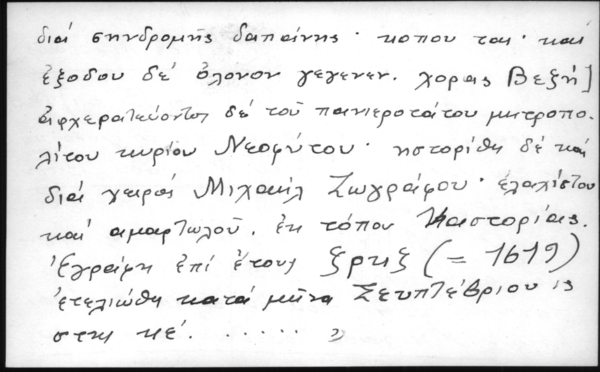 διά σηνδρομῆς δαπάνης · κοπου ται · καί
ἐξοδου δέ ὁλονον γεγενεν. χορας Βεζῆ]
ἀρχερατεύοντος δέ τοῦ πανιεροτάτου μητροπο-
λίτου κυρίου Νεοφύτου · ηστορίθη δέ καί
διά χειρός Μιχαήλ Ζωγράφου · ἐλαχίστου
καί αμαρτωλοῦ. ἐκ τόπου Καστορίας.
Ἐγράφη ἐπί ἔτους ξρκξ (= 1619)
ἐτελιώθη κατά μῆνα Σευπτέβριου ις
στας κέ. . . . . .